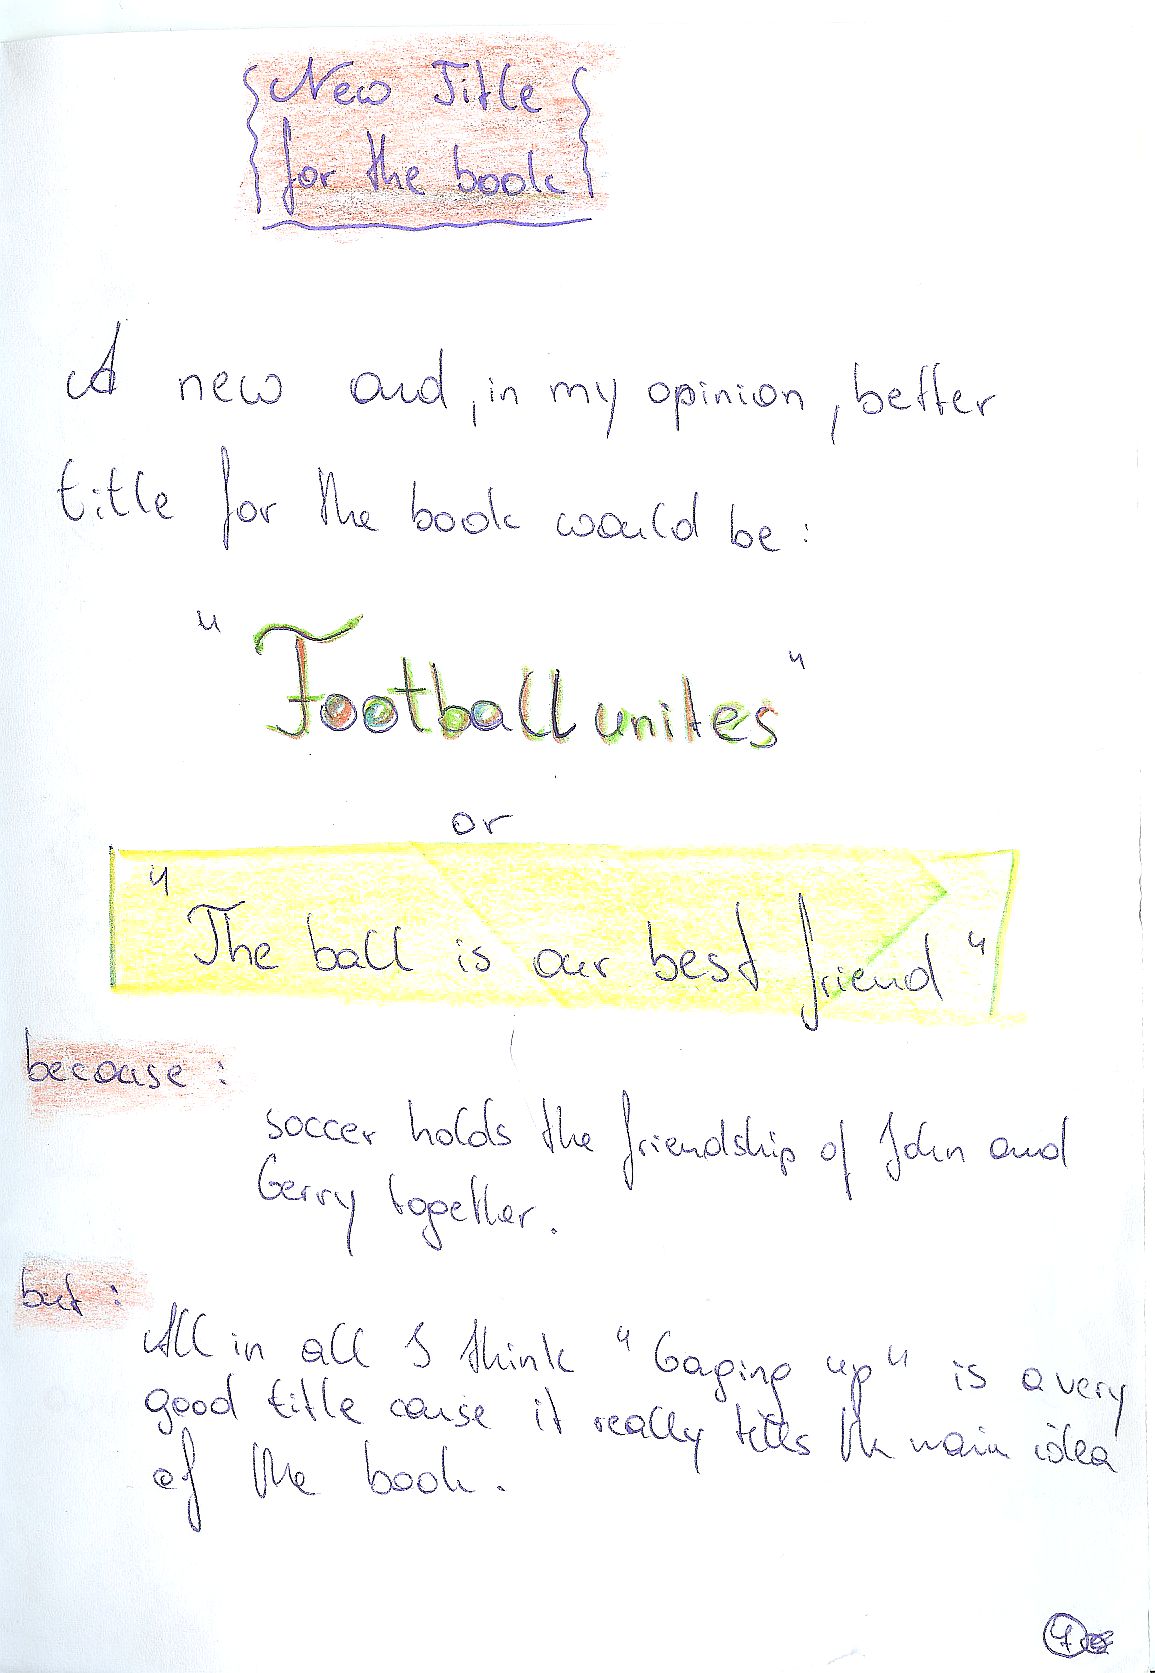 New Title
for the book
A new and, in my opinion, better
title for the book would be:
"Football unites"
or
"The ball is our best friend"
because:
soccer holds the friendship of John and
Gerry together.
but:
All in all I think "Gaging up" is a very
good title cause it really tells the main idea
of the book.